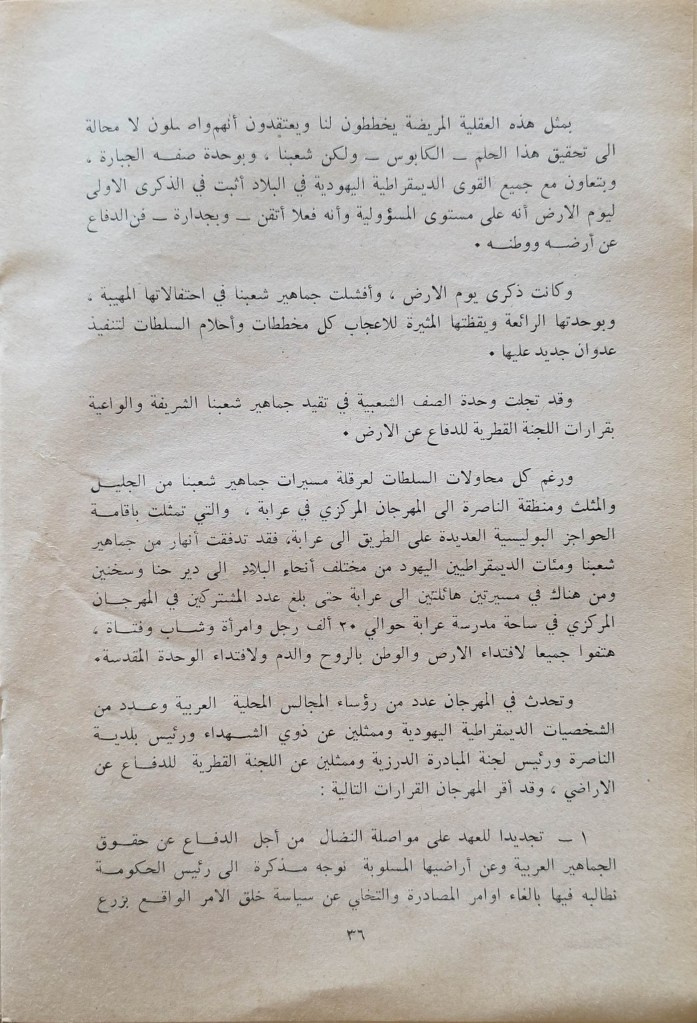 بمثل هذه العقلية المريضة يخططون لنا ويعتقدون أنهم واصلون لا محالة
الى تحقيق هذا الحلم ــ الكابوس ــ ولكن شعبنا ، وبوحدة صفه الجبارة ،
وبتعاون مع جميع القوى الديمقراطية اليهودية في البلاد أثبت في الذكرى الاولى
ليوم الارض أنه على مستوى المسؤولية وأنه فعلا أتقن ــ وبجدارة ــ فن الدفاع
عن أرضه ووطنه .
وكانت ذكرى يوم الارض ، وأفشلت جماهير شعبنا في احتفالاتها المهيبة ،
وبوحدتها الرائعة ويقظتها المثيرة للاعجاب كل مخططات وأحلام السلطات لتنفيذ
عدوان جديد عليها .
وقد تجلت وحدة الصف الشعبية في تقيد جماهير شعبنا الشريفة والواعية
بقرارات اللجنة القطرية للدفاع عن الارض .
ورغم كل محاولات السلطات لعرقلة مسيرات جماهير شعبنا من الجليل
والمثلث ومنطقة الناصرة الى المهرجان المركزي في عرابة ، والتي تمثلت باقامة
الحواجز البوليسية العديدة على الطريق الى عرابة، فقد تدفقت أنهار من جماهير
شعبنا ومئات الديمقراطيين اليهود من مختلف أنحاء البلاد الى دير حنا وسخنين
ومن هناك في مسيرتين هائلتين الى عرابة حتى بلغ عدد المشتركين في المهرجان
المركزي في ساحة مدرسة عرابة حوالي ٢٠ ألف رجل وامرأة وشاب وفتاة ،
هتفوا جميعا لافتداء الارض والوطن بالروح والدم ولافتداء الوحدة المقدسة.
وتحدث في المهرجان عدد من رؤساء المجالس المحلية العربية وعدد من
الشخصيات الديمقراطية اليهودية وممثلين عن ذوي الشهداء ورئيس بلدية
الناصرة ورئيس لجنة المبادرة الدرزية وممثلين عن اللجنة القطرية للدفاع عن
الاراضي ، وقد أقر المهرجان القرارات التالية :
١ ــ تجديدا للعهد على مواصلة النضال من أجل الدفاع عن حقوق
الجماهير العربية وعن أراضيها المسلوبة نوجه مذكرة الى رئيس الحكومة
نطالبه فيها بالغاء اوامر المصادرة والتخلي عن سياسة خلق الامر الواقع بزرع
٣٦